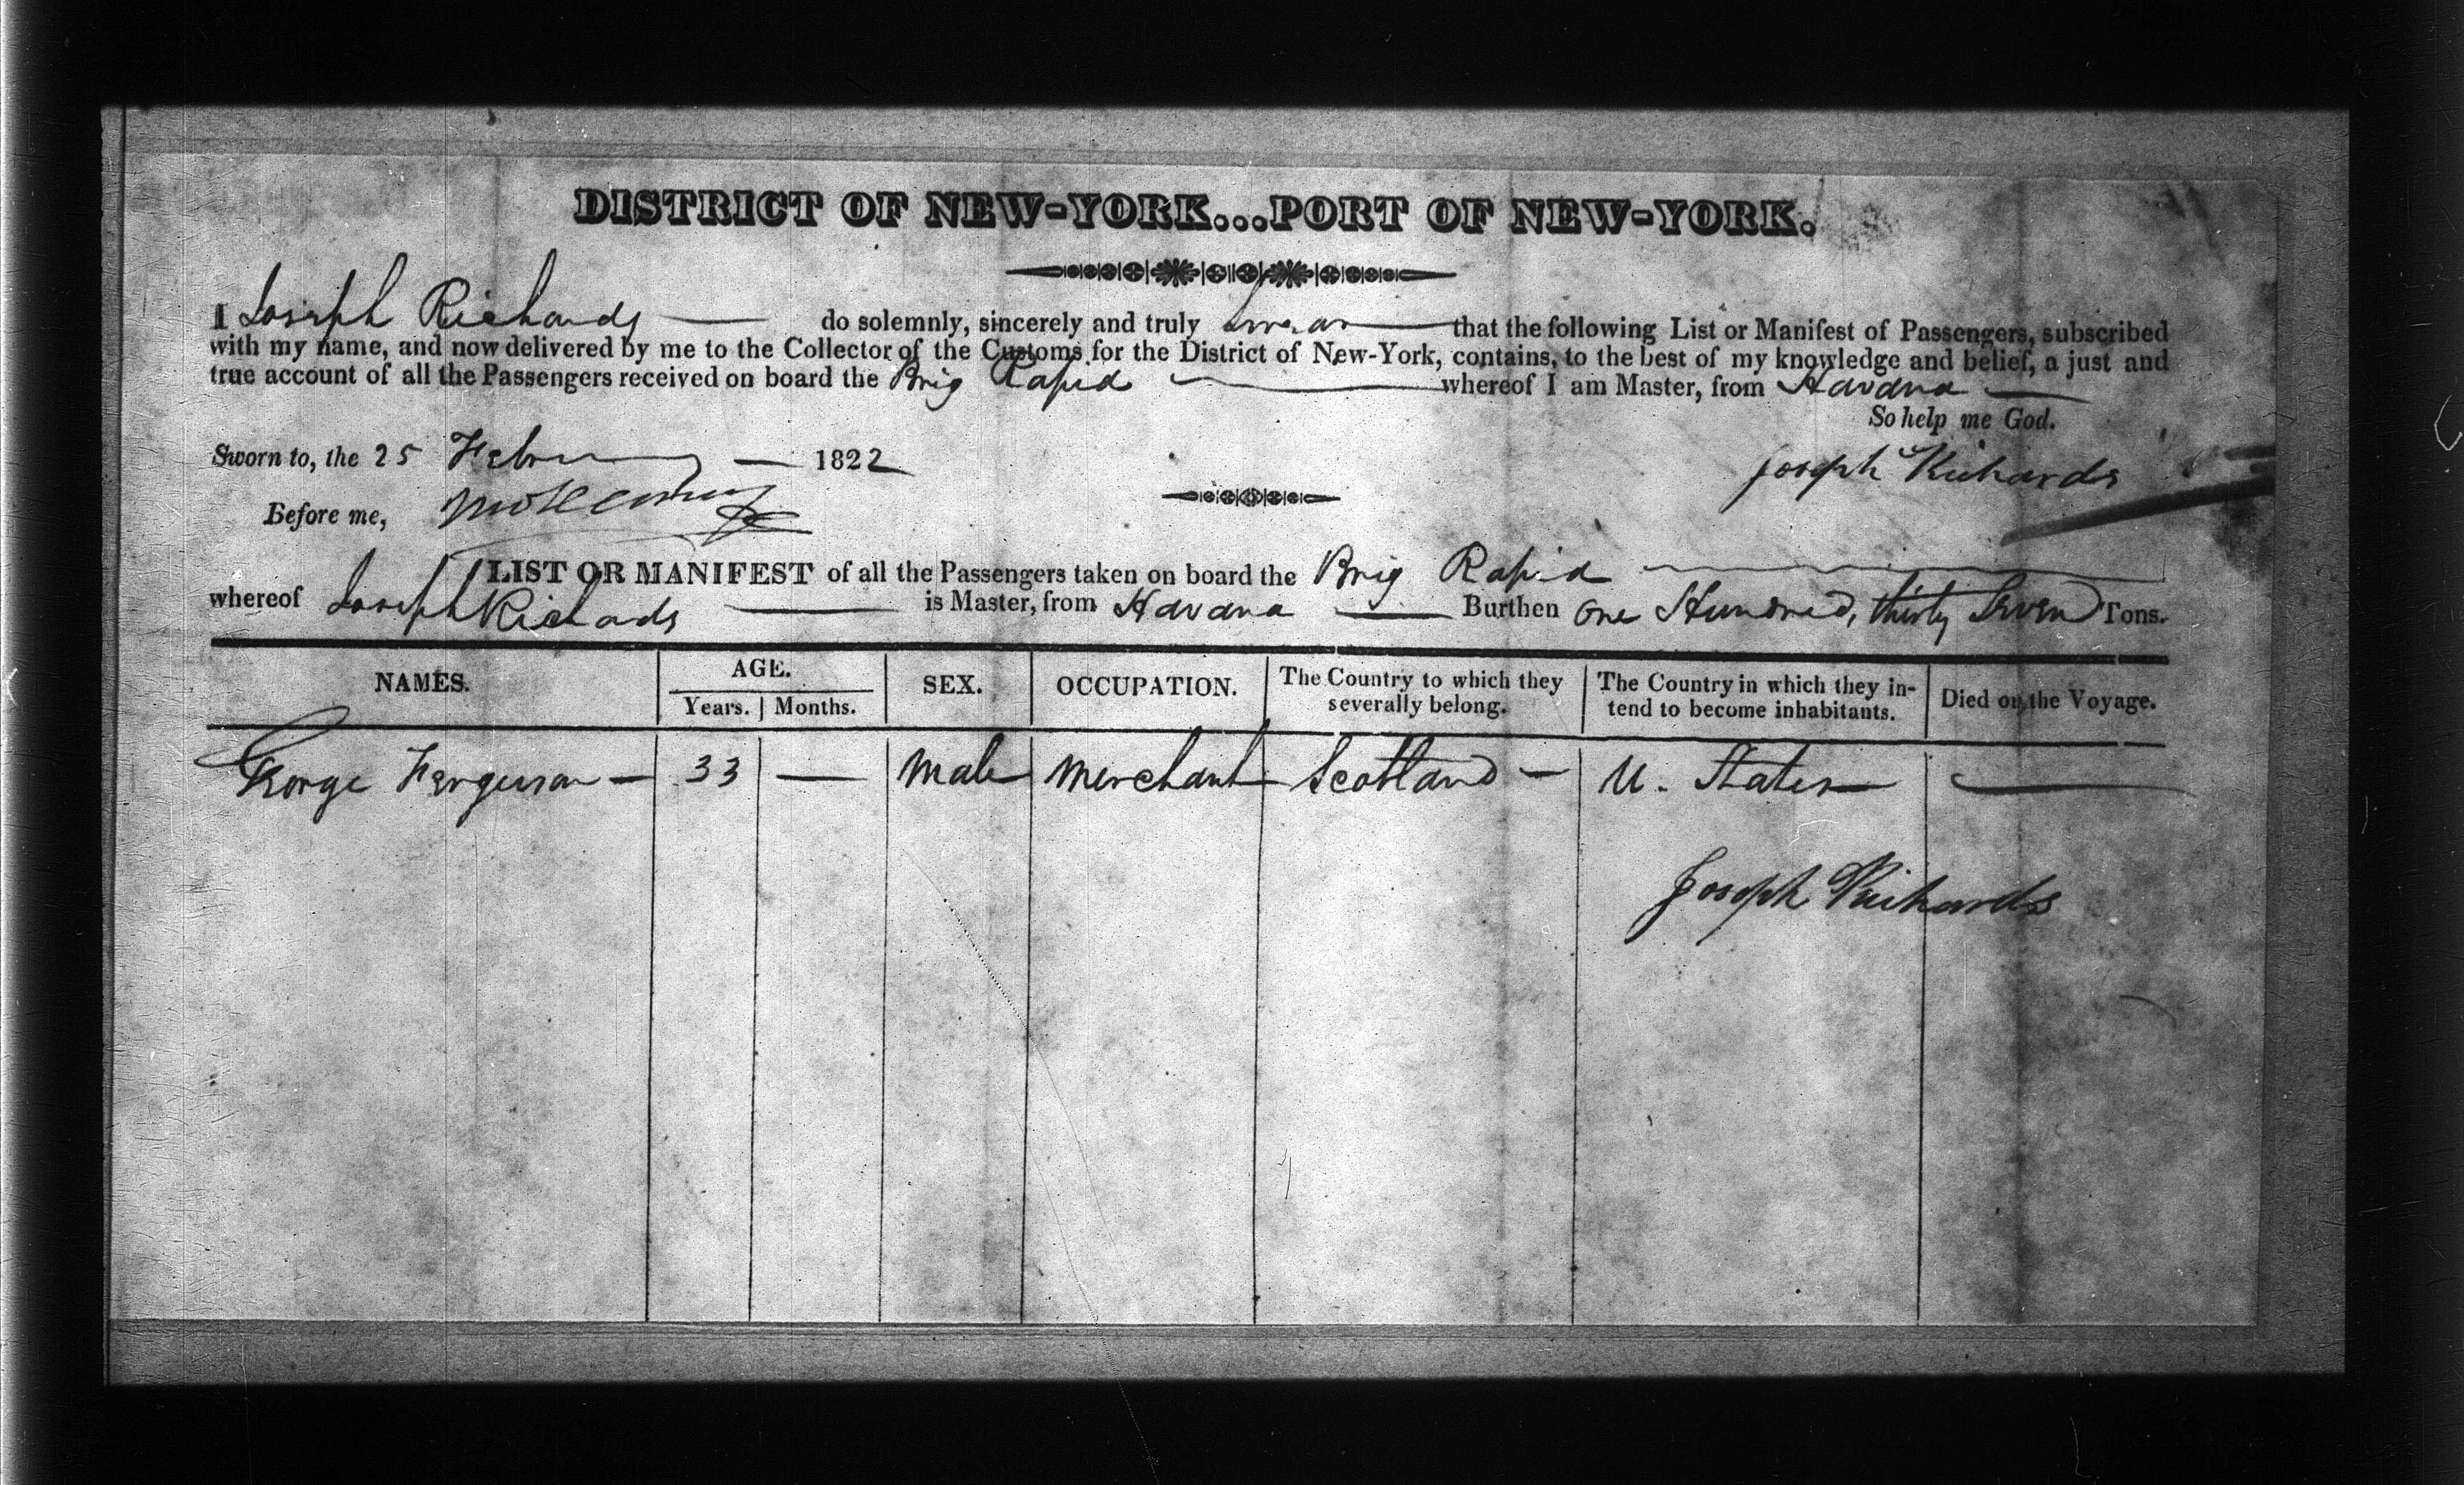 DISTRICT OF NEW-YORK...PORT OF NEW-YORK.
I Joseph Richards do solemnly, sincerely and truly swear that the following List or Manifest of Passengers, subscribed
with my name, and now delivered by me to the Collector of the Customs for the District of New-York, contains, to the best of my knowledge and belief, a just and
true account of all the Passengers received on board the Brig Rapid whereof I am Master, from Havana
So help me God.
Sworn to, the 25 February 1822
Joseph Richards
Before me,
LIST OR MANIFEST of all the Passengers taken on board the Brig Rapid
whereof Joseph Richards is Master, from Havana Burthen One Hundred, thirty Seven Tons.
NAMES. AGE. Years. Months. SEX. OCCUPATION. The Country to which they severally belong. The Country in which they in-tend to become inhabitants. Died on the Voyage.
George Ferguson — 33 — Male Merchant Scotland — U. States —
Joseph Richards